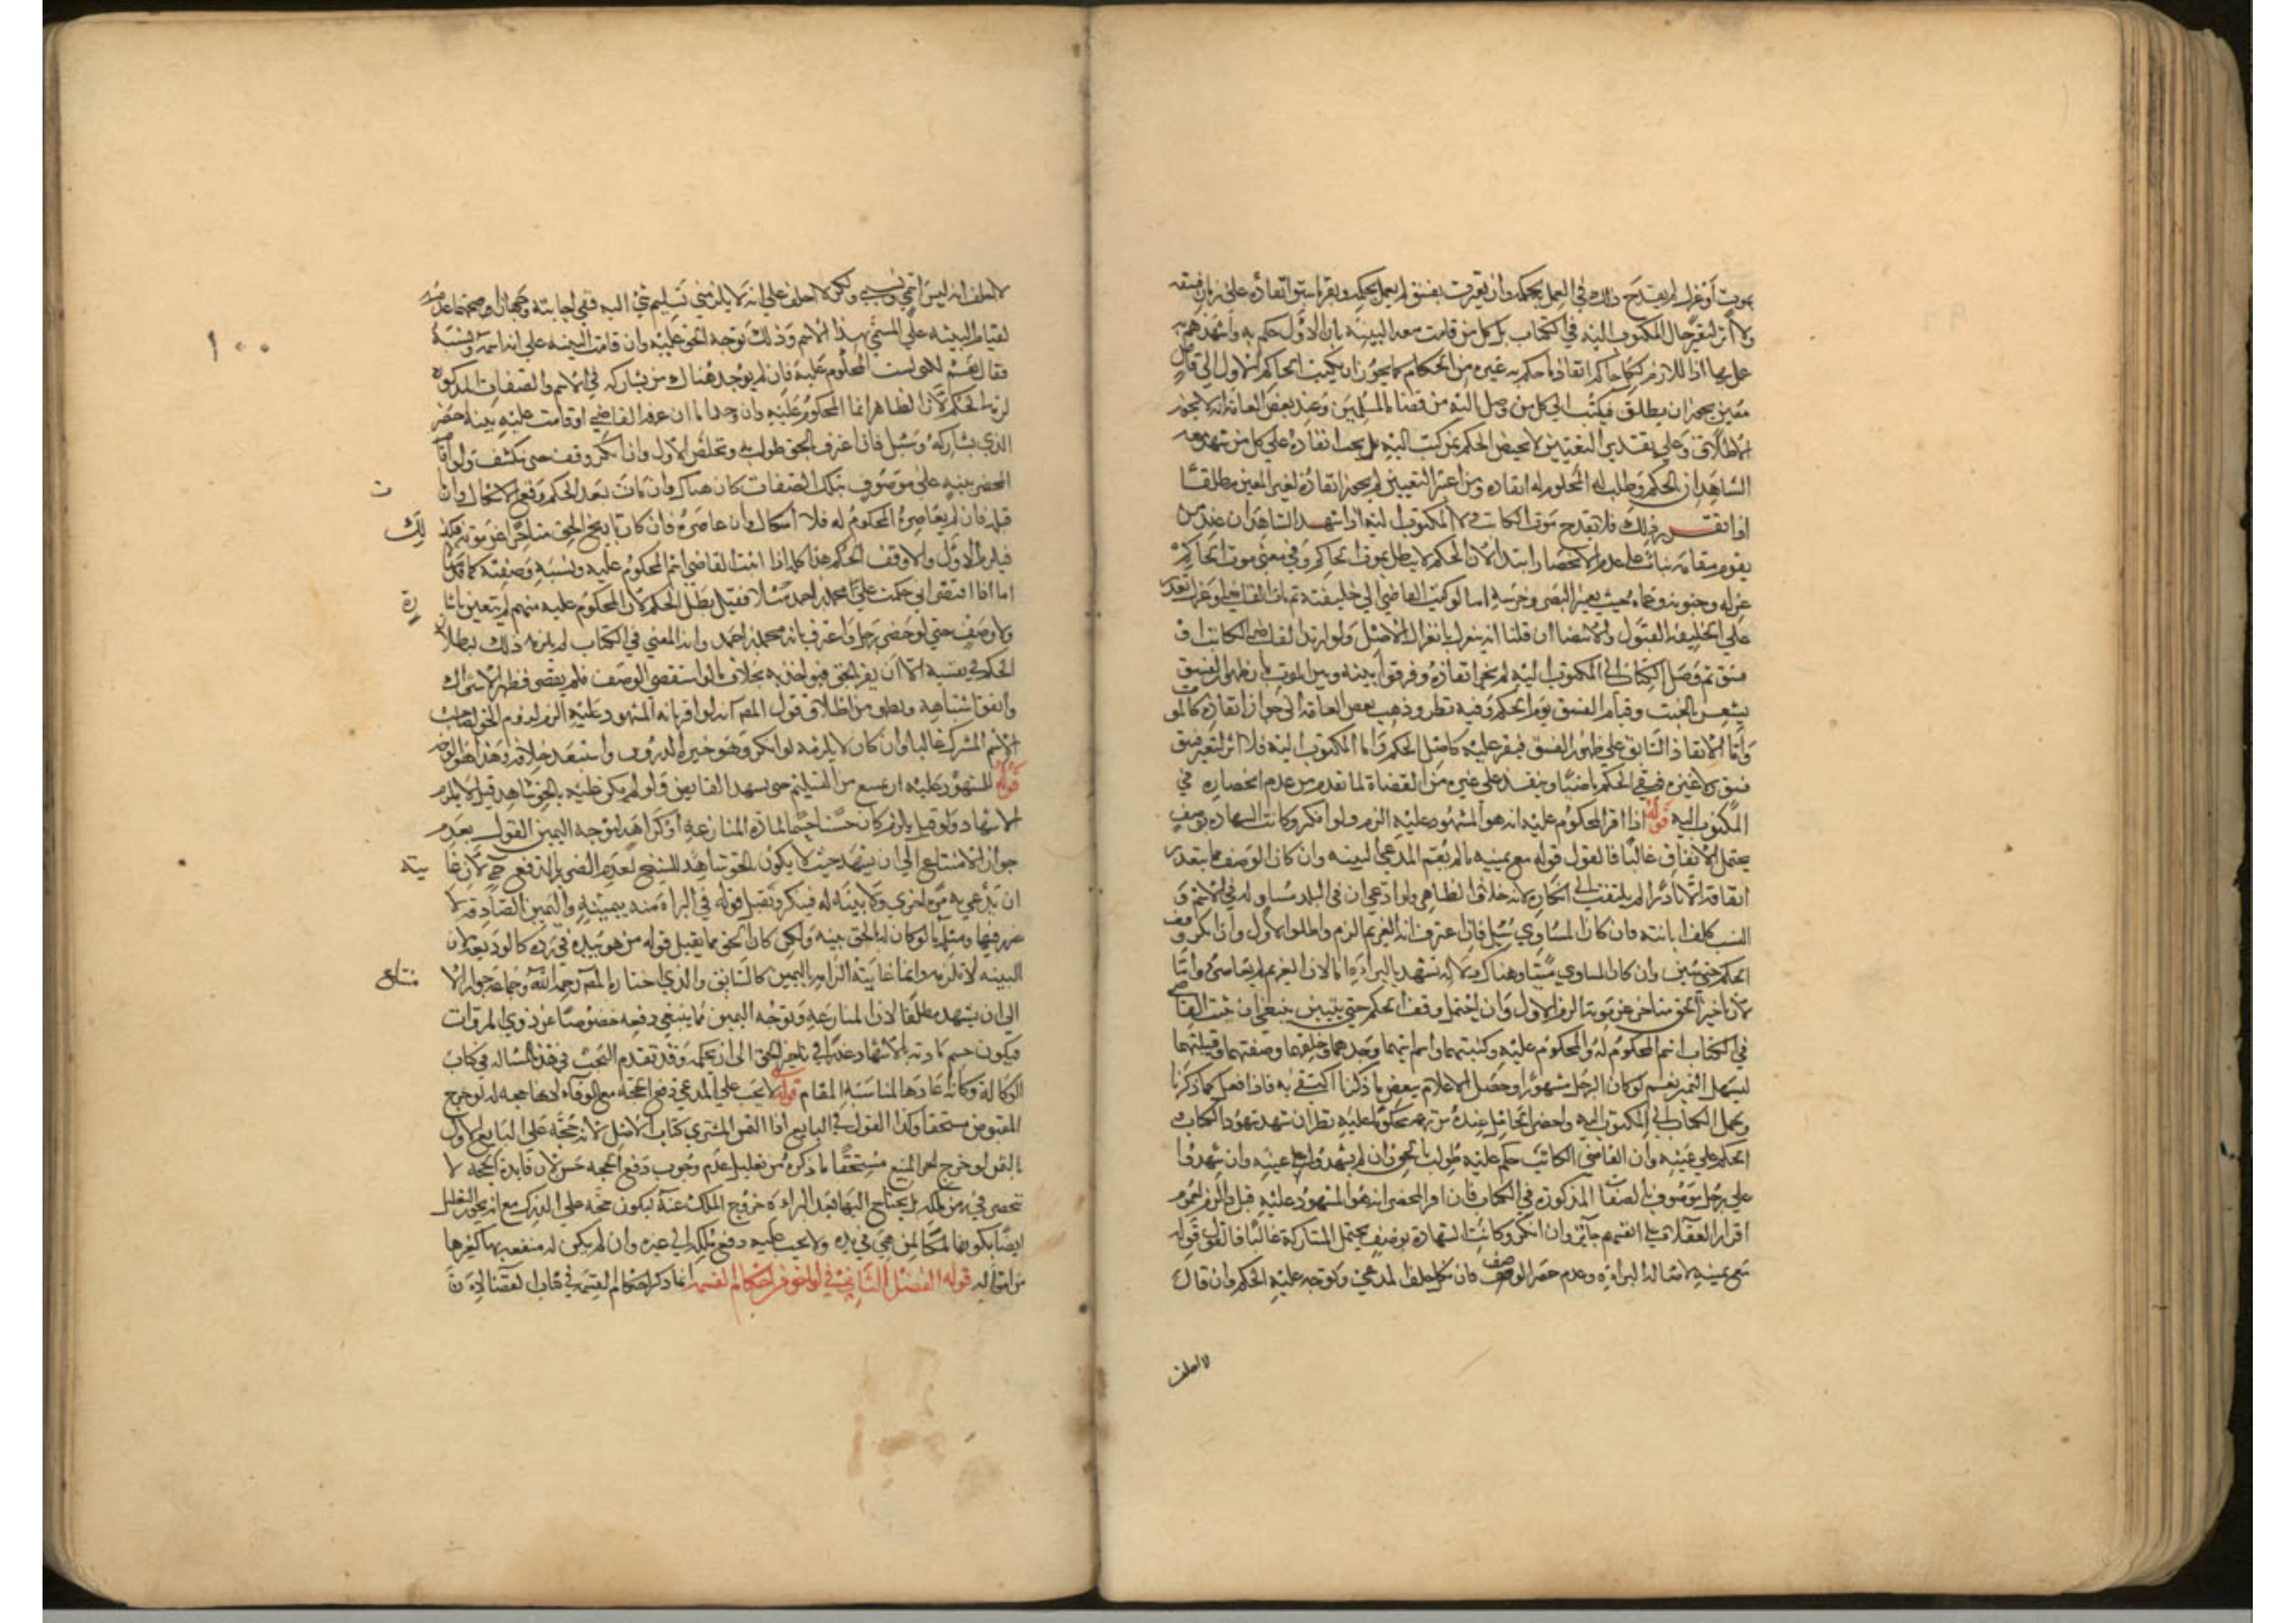 بموت أو عزل لم يقدح ذلك في العمل بحكمه وان تغيرت بفسق لم يعمل بحكمه ويقر ما سبق انفاذه على زمان فسقه
ولا أثر لتغير حال المكتوب اليه في الكتاب بل كل من قامت عنده البينه بان الاول حكم به واشهدهم به
عليها اذ اللازم لكل حاكم انفاذ ما حكم به غيره من الحكام كما يجوز ان يكتب الحاكم الاول الى قاض
معين يجوز ان يطلق فيكتب الى كل من وصل اليه من قضاة المسلمين وعند بعض العامة انه لا يجوز
الاطلاق وعلى تقدير التعيين لا يختص الحكم بمن كتب اليه بل يجب انفاذه على كل من شهد عنده
الشاهدان بالحكم وطلب المحكوم له انفاذه ومن اعتبر التعيين لم يجوز انفاذه لغير المعين مطلقا
اذا تقرر ذلك فلا يقدح موت الكاتب ولا المكتوب اليه اذا شهد الشاهدان عند من
يقوم مقامه بناء على عدم الانحصار ابتداء لان الحكم لا يبطل بموت الحاكم وفي معنى موت الحاكم
عزله وجنونه وعماه بحيث يعتبر البصر وخرسه اما لو كتب القاضي الى خليفته ثم مات القاضي او عزل تعذر
على الخليفه القبول والامضا ان قلنا انه ينعزل بانعزال الاصل ولو ارتد القاضي الكاتب او
فسق ثم وصل الكتاب الى المكتوب اليه لم يجز انفاذه وفرقوا بينه وبين الموت بان ظهور الفسق
يشعر بالخبث وقيام الفسق يوم الحكم وفيه نظر وذهب بعض العامة الى جواز انفاذه كالموت
واما الانفاذ السابق على ظهور الفسق فيقر عليه كاصل الحكم واما المكتوب اليه فلا اثر لتغيره بفسق
فسق لا غيره فيبقى الحكم ماضيا وينفذ على غيره من القضاة لما تقدم من عدم انحصاره في
المكتوب اليه قوله اذا اقر المحكوم عليه انه هو المشهود عليه الزم ولو انكر وكانت الشهادة بوصف
يحتمل الاتفاق غالبا فالقول قوله مع يمينه ما لم يقم المدعي البينه وان كان الوصف مما يتعذر
اتفاقه الا نادرا لم يلتفت الى انكاره لانه خلاف الظاهر ولو ادعى ان في البلد مساويا له في الاسم و
النسب كلف ابانته فان كان المساوي سئل فان اعترف انه الغريم الزم واطلق الاول وان انكر وقف
الحكم حتى يتبين وان كان المساوي ميتا وهناك دلالة تشهد بالبراءة اما لان الغريم لم يعاصره واما
لان تاريخ الحق متاخر عن موته الزم الاول وان احتمل وقف الحكم حتى يتبين ينبغي ان يثبت القاضي
في الكتاب اسم المحكوم له والمحكوم عليه وكنيتهما واسم ابيهما وجدهما وحليتهما وصفتهما وقبيلتهما
ليسهل التميز نعم لو كان الرجل مشهورا وحصل الاعلام ببعض ما ذكرنا اكتفي به فاذا فعل كما ذكرنا
وحمل الكتاب الى المكتوب اليه واحضر الحامل عنده من زعم محكوما عليه نظر ان شهد شهود الكتاب
الحكم على عينه وان القاضي الكاتب حكم عليه طولب بالحق وان لم يشهدوا على عينه وان شهدوا
على رجل موصوف بالصفات المذكورة في الكتاب فان اقر المحضر انه هو المشهود عليه قبل والزم لعموم
اقرار العقلاء على انفسهم جائز وان انكر وكانت الشهادة بوصف يحتمل المشاركة غالبا فالقول قوله
مع يمينه لاصالة البراءة وعدم حصر الوصف فان نكل حلف المدعي وتوجه عليه الحكم وان قال
لا احلف
١٠٠
لا احلف انه ليس اسمي ونسبي ولكن احلف على انه لا يلزمني تسليم شيء اليه ففي اجابته وجهان اصحهما عدمه
لقيام البينه على المسمى بهذا الاسم وذلك يوجب توجه الحق عليه وان قامت البينه على انه اسمه ونسبه
فقال نعم لكني لست المحكوم عليه فان لم يوجد هناك من يشاركه في الاسم والصفات المذكورة
لزمه الحكم لان الظاهر انه المحكوم عليه وان وجد اما ان عرفه القاضي او قامت عليه بينه احضر
الذي يشاركه وسئل فان اعترف بالحق طولب به وتخلص الاول وان انكر وقف حتى ينكشف ولو اقام
المحضر بينه على موصوف بتلك الصفات كان هناك وان مات بعد الحكم وقع الاشكال وان مات
قبله فان لم يعاصره المحكوم له فلا اشكال وان عاصره فان كان تاريخ الحق متاخرا عن موته فكذلك
فيلزم الاول والا وقف الحكم هذا كله اذا اثبت القاضي اسم المحكوم عليه ونسبه وصفته كما قدمنا
اما اذا اقتصر على اني حكمت على محمد بن احمد مثلا فقيل يبطل الحكم لان المحكوم عليه مبهم لم يتعين باشارة
ولا وصف حتى لو حضر رجل واعترف بانه محمد بن احمد وانه المعني في الكتاب لم يلزمه ذلك لبطلان
الحكم في نفسه الا ان يقر بالحق فيؤاخذ به بخلاف ما لو استقصى الوصف فلم يقصر فظهر الاشتراك
واتفق اشتباهه ويظهر من اطلاق قول المصنف انه لو اقر بانه المشهود عليه الزم لزوم الحق لصاحب
الاسم المشترك غالبا وان كان لا يلزمه لو انكر وهو خيرة الدروس واستبعد خلافه وهذا اظهر الوجه
قوله للمشهود عليه ان يمتنع من التسليم حتى يشهد القابض ولو لم يكن عليه بالحق شاهد قيل لا يلزم
الاشهاد ولو قيل يلزم كان حسنا حسما لمادة المنازعة او كراهة لتوجه اليمين القول بعدم
جواز الامتناع الى ان يشهد حيث لا يكون بالحق شاهد للشيخ لعدم الضرر بالدفع ح لان غايته
ان يدعي به مرة اخرى ولا بينة له فينكر وتقبل قوله في البراءة منه بيمينه واليمين الصادقه لا
ضرر فيها ومثله ما لو كان بالحق بينه ولكن كان الحق مما يقبل قول من هو بيده في رده كالوديعة لان
البينه لا تلزمه وانما غايته الزامه باليمين كالسابق والذي اختاره المصنف رحمه الله وجماعة جواز الامتناع
الى ان يشهد مطلقا لان المنازعة وتوجه اليمين مما ينبغي دفعه خصوصا عن ذوي المروات
فيكون حسم مادته بالاشهاد عذرا في تاخير الحق الى ان يحكمه وقد تقدم البحث في هذه المسالة في كتاب
الوكالة وكانه اعادها لمناسبة المقام قوله لا يجب على المدعي دفع الحجة مع الوفاء لانها حجة له لو خرج
المقبوض مستحقا وكذا القول في البايع اذا التمس المشتري كتاب الاصل لانه حجة على البايع الاول
بالثمن لو خرج المبيع مستحقا ما ذكره من تعليل عدم وجوب دفع الحجه حسن لان فايدة الحجه لا
تنحصر في زمن ملكه بل يحتاج اليها بعد البراءة خروج الملك عنه ليكون حجة على الدرك مع انه يجوز التعليل
ايضا بكونها ملكا لمن هي في يده ولا يجب عليه دفع ملكه الى غيره وان لم يكن له منفعه بها كغيرها
من امواله قوله الفصل الثاني في لواحق من احكام القسمة انما ذكر احكام القسمة في كتاب القضا لان